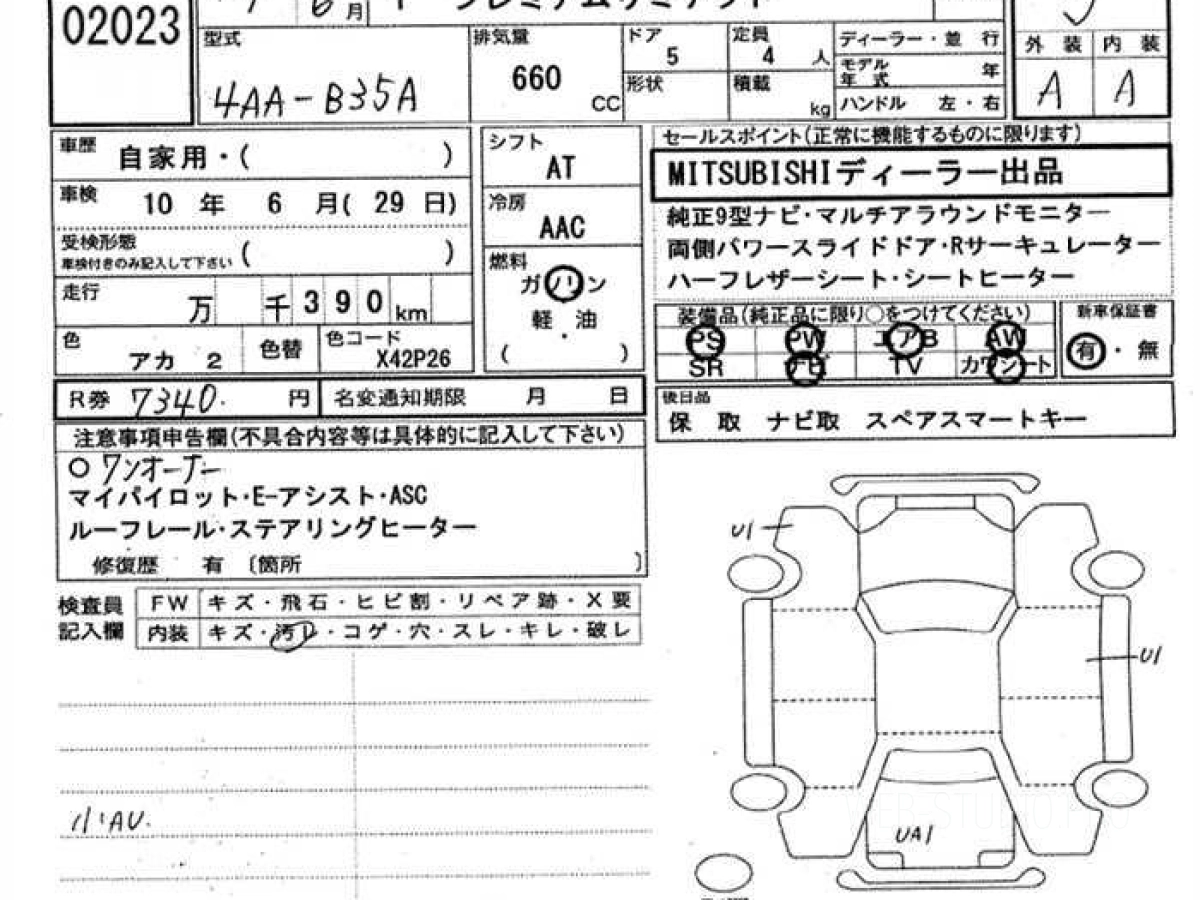 02023
月
型式
4AA-B35A
排気量
660
CC
ドア
5
定員
4 人
形状
積載
kg
ディーラー・並 行
モデル年 式 年
ハンドル 左・右
外 装 内 装
A A
車歴
自家用・( )
車検
10 年 6 月( 29 日)
受検形態
車検付きのみ記入して下さい ( )
走行
万 千 3 9 0 km
色
アカ 2
色替
色コード
X42P26
シフト
AT
冷房
AAC
燃料
ガソリン
軽・油
( )
セールスポイント(正常に機能するものに限ります)
MITSUBISHIディーラー出品
純正9型ナビ・マルチアラウンドモニター
両側パワースライドドア・Rサーキュレーター
ハーフレザーシート・シートヒーター
装備品(純正品に限り○をつけてください)
PS PW エアB AW
SR ナビ TV カワシート
新車保証書
有・無
R券 7340. 円
名変通知期限 月 日
後日品
保 取 ナビ取 スペアスマートキー
注意事項申告欄(不具合内容等は具体的に記入して下さい)
○ワンオーナー
マイパイロット・E-アシスト・ASC
ルーフレール・ステアリングヒーター
修復歴 有 〔箇所 〕
検査員
記入欄
FW キズ・飛石・ヒビ割・リペア跡・X要
内装 キズ・汚レ・コゲ・穴・スレ・キレ・破レ
U1
U1
UA1